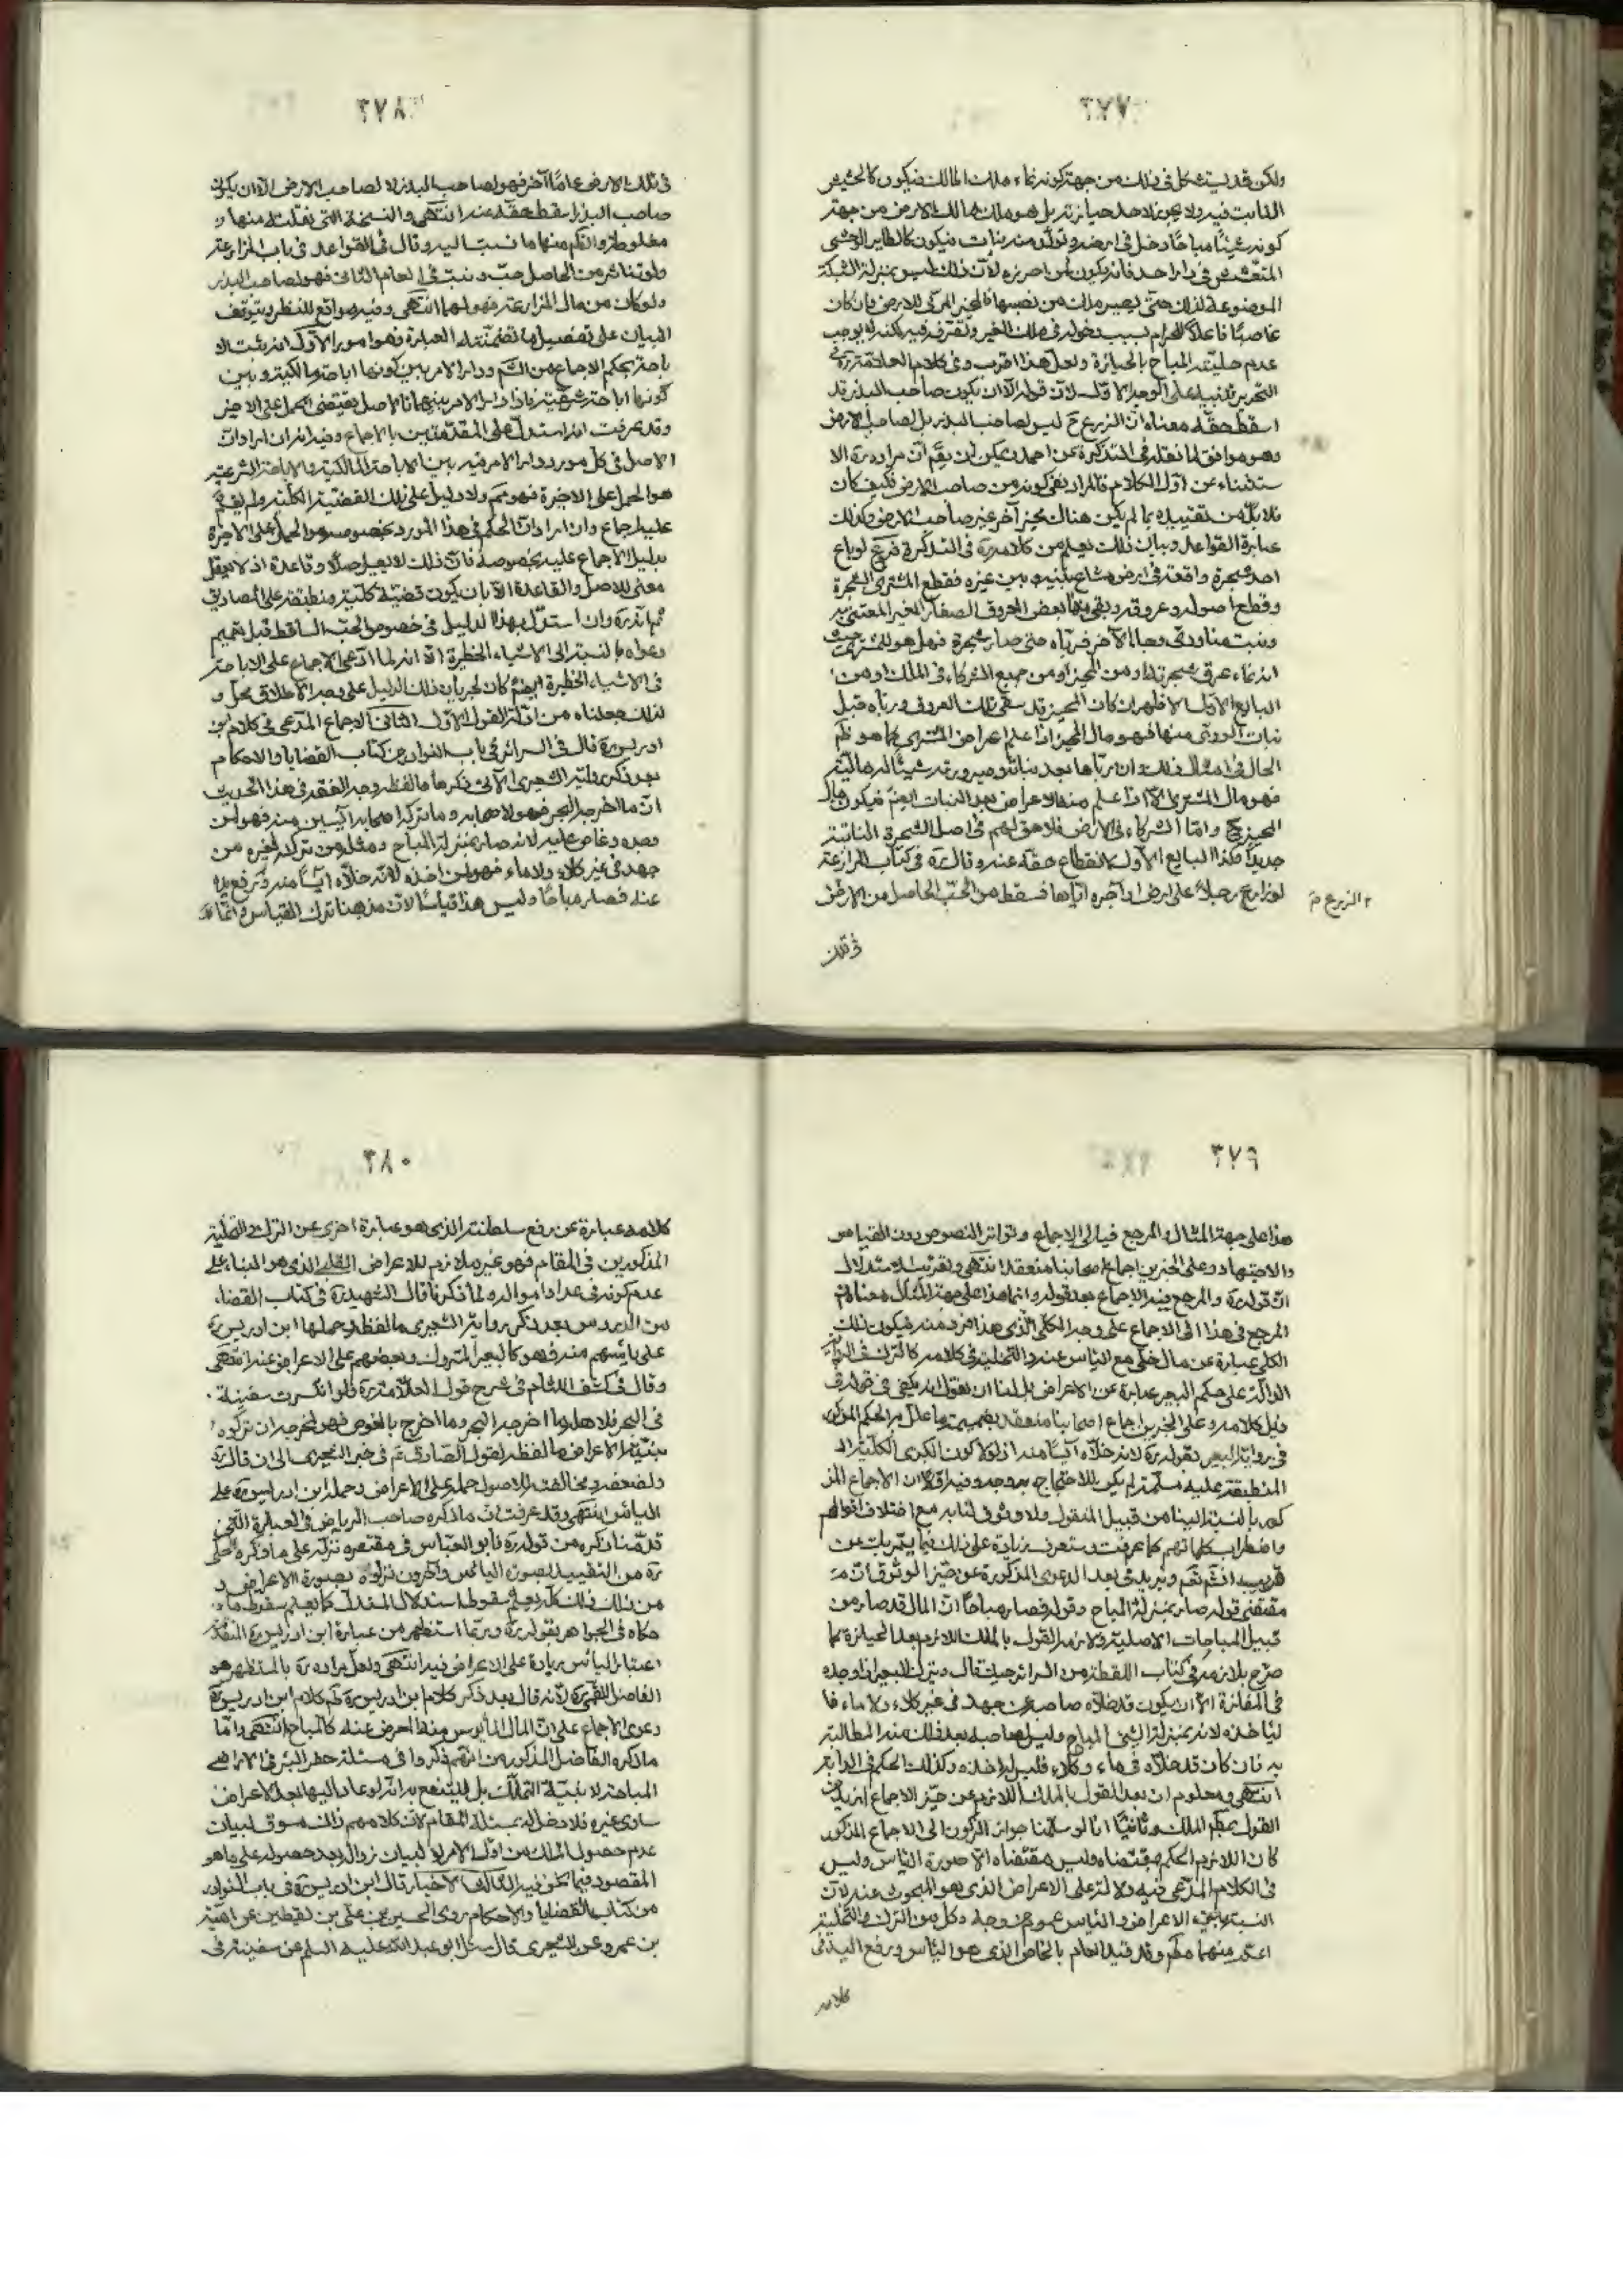 ٣٧٧
ولكن قد يستشكل في ذلك من جهة كونه نماء ملك المالك فيكون كالحشيش
النابت فيه ولا يجوز لاحد حيازته بل هو ملك لمالك الارض من جهة
كونه شيئًا مباحًا دخل في ارضه وتولد منه نبات فيكون كالطاير الوحشي
المتعشش في دار احد فانه يكون لمن احرزه لان ذلك ليس بمنزلة الشبكة
الموضوعة لذلك حتى يصير ملك من نصبها فالمحيز المربى للارض وان كان
غاصبًا فاعلًا للحرام بسبب دخوله في ملك الغير وتصرف فيه لكنه لا يوجب
عدم حلية المباح بالحيازة ولعل هذا اقرب وفي كلام العلامة ره في
التحرير تنبيه على الوجه الاول لان قوله الا ان يكون صاحب البذر قد
اسقط حقه معناه ان الزرع ح ليس لصاحب البذر بل لصاحب الارض
وهو موافق لما نقله في التذكرة عن احمد ويمكن ان يقم ان مراده ره الا
ستثناء عن اول الكلام فالمراد نفي كونه من صاحب الارض فكيف كان
فلا بد من تقييده بما لم يكن هناك محيز آخر غير صاحب الارض وكذلك
عبارة القواعد وبيان ذلك يعلم من كلامه ره في التذكرة فرع لو باع
احد شجرة واقعة في ارض مشاع بينه وبين غيره فقطع المشتري الشجرة
وقطع اصوله وعروقه وبقي منها بعض العروق الصغار الغير المعتنى به
ونبت منه ورق وجاء الآخر فرباه حتى صار شجرة فهل هو للمشتري حيث
انه نماء عرق شجرته او من المحيز او من جميع الشركاء في الملك او من
البايع الاول الاظهر ان كان المحيز قد سقى تلك العروق ورباه قبل
نبات الورق منها فهو مال المحيز اذا علم اعراض المشتري كما هو ظم
الحال في امثال ذلك وان رباها بعد نباته وصيرورته شيئًا له مالية
فهو مال المشتري الا اذا علم منه الاعراض بعد النبات ايضم فيكون مال
المحيز ح واما الشركاء في الارض فلا حق لهم في اصل الشجرة النابتة
جديدًا فكذا البايع الاول لانقطاع حقه عنه وقال ره في كتاب المزارعة
لو زارع رجلًا على ارض او آجره اياها فسقط من الحب الحاصل من الارض
الزرع م
في تلك
٣٧٨
في تلك الارض عامًا آخر فهو لصاحب البذر لا لصاحب الارض الا ان يكون
صاحب البذر اسقط حقه عنه انتهى والنسخة التي نقلته منها و
مغلوطة والظم منها ما نسبت اليه وقال في القواعد في باب المزارعة
ولو تناثر من الحاصل حب ونبت في العام الثاني فهو لصاحب البذر
ولو كان من مال المزارعة فهو لهما انتهى وفيه مواقع للنظر ويتوقف
البيان على تفصيل ما تضمنته العبارة فهو امور الاول انه يثبت الا
باحة بحكم الاجماع من الكل ودار الامر بين كونها اباحة مالكية وبين
كونها اباحة شرعية فاذا دار الامر بينهما فالاصل يقتضي الحمل على الاخير
وقد عرفت انه استدل على المقدمتين بالاجماع وفيه انه ان اراد ان
الاصل في كل مورد دار الامر فيه بين الاباحة المالكية والاباحة الشرعية
هو الحمل على الاخيرة فهو مم ولا دليل على تلك القضية الكلية ولم يقم
عليه اجماع وان اراد ان الحكم في هذا المورد بخصوصه هو الحمل على الاخيرة
بدليل الاجماع عليه بخصوصه فان ذلك لا يعد اصلًا وقاعدة اذ لا يعقل
معنى للاصل والقاعدة الا بان يكون قضية كلية منطبقة على المصاديق
ثم انه ره وان استدل بهذا الدليل في خصوص الحب الساقط قبل تعميم
دعواه بالنسبة الى الاشياء الخطيرة الا انه لما ادعى الاجماع على الاباحة
في الاشياء الخطيرة ايضم كان لجريان ذلك الدليل على وجه الاطلاق محل و
لذلك جعلناه من ادلة القول الاول الثاني الاجماع المدعى في كلام ابن
ادريس ره قال في السرائر في باب النوادر من كتاب القضايا والاحكام
بعد ذكر رواية الشعيري الآتي ذكرها ما لفظه وجه الفقه في هذا الحديث
ان ما اخرجه البحر فهو لاصحابه وما تركه اصحابه آيسين منه فهو لمن
وجده وغاص عليه لانه صار بمنزلة المباح ومثله من ترك بعيره من
جهد في غير كلاء ولا ماء فهو لمن اخذه لانه خلاه آيسًا منه ورفع يده
عنه فصار مباحًا وليس هذا قياسًا لان مذهبنا ترك القياس وانما
٣٧٩
هذا على جهة المثال والمرجع فيه الى الاجماع وتواتر النصوص دون القياس
والاجتهاد وعلى الخبرين اجماع اصحابنا منعقد انتهى وتقريب الاستدلال
ان قوله ره والمرجع فيه الاجماع بعد قوله وانما هذا على جهة المثال معناه ان
المرجع في هذا الى الاجماع على وجه الكلي الذي هذا فرد منه فيكون ذلك
الكلي عبارة عن مال خلي مع اليأس عنه والتخلية في كلامه كالترك في الرواية
الدالة على حكم البعير عبارة عن الاعراض بل لنا ان نقول انه يكفي في قوله في
ذيل كلامه وعلى الخبرين اجماع اصحابنا منعقد بضميمة ما علل به الحكم المذكور
في رواية البعير بقوله ره لانه خلاه آيسًا منه اذ لولا كون الكبرى الكلية
المنطبقة عليه مسلمة لم يكن للاحتجاج به وجه وفيه اولًا ان الاجماع المذ
كور بالنسبة الينا من قبيل المنقول ولا وثوق لنا به مع اختلاف اقوالهم
واضطراب كلماتهم كما عرفت وستعرف زيادة على ذلك فيما يمر بك عن
قريب انشم تعم ويزيد في بعد الدعوى المذكورة عن حيز الوثوق ان
مقتضى قوله صار بمنزلة المباح وقوله فصار مباحًا ان المال قد صار من
قبيل المباحات الاصلية ولازمه القول بالملك اللازم بعد الحيازة كما
صرح بلازمه في كتاب اللقطة من السرائر حيث قال ويترك البعير اذا وجده
في المفازة الا ان يكون قد خلاه صاحبه من جهد في غير كلاء ولا ماء فا
ليأخذه لانه بمنزلة الشيء المباح وليس لصاحبه بعد ذلك منه المطالبة
به فان كان قد خلاه في ماء وكلاء فليس له اخذه وكذلك الحكم في الدابة
انتهى ومعلوم ان بعد القول بالملك اللازم عن حيز الاجماع ازيد من
القول بمطلم الملك وثانيًا انا لو سلمنا جواز الركون الى الاجماع المذكور
كان اللازم الحكم بمقتضاه وليس مقتضاه الا صورة اليأس وليس
في الكلام المدعى فيه دلالة على الاعراض الذي هو المبحوث عنه لان
النسبة بين الاعراض واليأس عموم من وجه وكل من الترك والتخلية
اعم منهما مطم وقد قيد العام بالخاص الذي هو اليأس ورفع اليد في
كلامه
٣٨٠
كلامه عبارة عن رفع سلطنته الذي هو عبارة اخرى عن الترك والتخلية
المذكورين في المقام فهو غير ملازم للاعراض القلبي الذي هو البناء على
عدم كونه في عداد امواله ولما ذكرنا قال الشهيد ره في كتاب القضاء
من الدروس بعد ذكر رواية الشعيري ما لفظه وحملها ابن ادريس ره
على يأسهم منه فهو كالبعير المتروك وبعضهم على الاعراض عنه انتهى
وقال في كشف اللثام في شرح قول العلامة ره ولو انكسرت سفينة
في البحر فلاهلها ما اخرجه البحر وما اخرج بالغوص فهو لمخرجه ان تركوه
بنية الاعراض ما لفظه لقول الصادق ع في خبر الشعيري الى ان قال ره
ولضعفه ومخالفته للاصول حمل على الاعراض وحمله ابن ادريس ره على
اليأس انتهى وقد عرفت ان ما ذكره صاحب الرياض في العبارة التي
قدمنا ذكره من قوله ره فابو العباس في مقتصره نزله على ما ذكره الحلي
ره من التقييد بصورة اليأس وآخرون نزلوه بصورة الاعراض و
من ذلك كله يعلم سقوط استدلال المستدل كما يعلم سقوط ما
حكاه في الجواهر بقوله ره وربما استظهر من عبارة ابن ادريس ره المتقدمة
اعتبار اليأس زيادة على الاعراض فيه انتهى ولعل مراده ره بالمستظهر هو
الفاضل القمي ره لانه قال بعد ذكر كلام ابن ادريس ره ثم كلام ابن ادريس ره
دعوى الاجماع على ان المال المأيوس منه المعرض عنه كالمباح انتهى واما
ما ذكره الفاضل المذكور من انهم ذكروا في مسئلة حفر البئر في الاراضي
المباحة لا بنية التملك بل لينتفع به انه لو عاد اليها بعد الاعراض
ساوى غيره فلا دخل له بمسئلة المقام لان كلامهم ذلك مسوق لبيان
عدم حصول الملك من اول الامر لا لبيان زواله بعد حصوله على ما هو
المقصود فيما نحن فيه الثالث الاخبار قال ابن ادريس ره في باب النوادر
من كتاب القضايا والاحكام روى الحسن بن علي بن يقطين عن امية
بن عمرو عن الشعيري قال سئل ابو عبد الله عليه السلم عن سفينة في